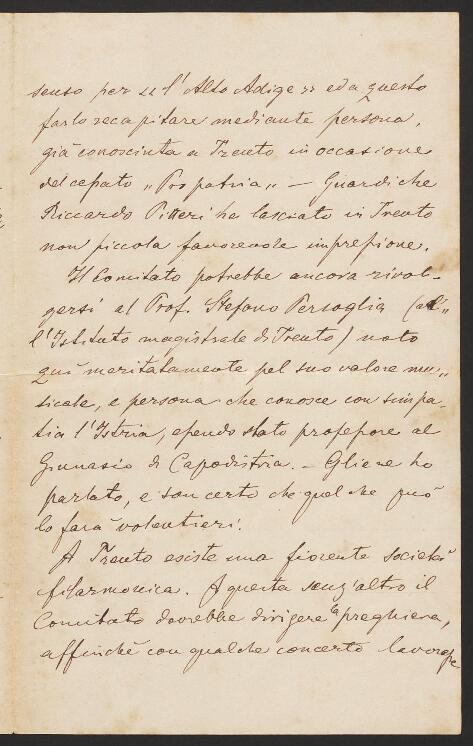 senso per su l'Alto Adige » ed a questo
farlo recapitare mediante persona,
già conosciuta a Trento in occasione
del cessato „ Pro patria „ — Guardi che
Riccardo Pitteri ha lasciato in Trento
non piccola favorevole impressione.
Il Comitato potrebbe ancora rivol-
gersi al Prof. Stefano Persoglia (al„
l'Istituto magistrale di Trento) noto
quì meritatamente pel suo valore mu„
sicale, e persona che conosce con simpa-
tia l'Istria, essendo stato professore al
Ginnasio di Capodistria. — Gliene ho
parlato, e son certo che quel che può
lo farà volentieri.
A Trento esiste una fiorente società
filarmonica. A questa senz'altro il
Comitato dovrebbe dirigere la preghiera,
affinchè con qualche concerto